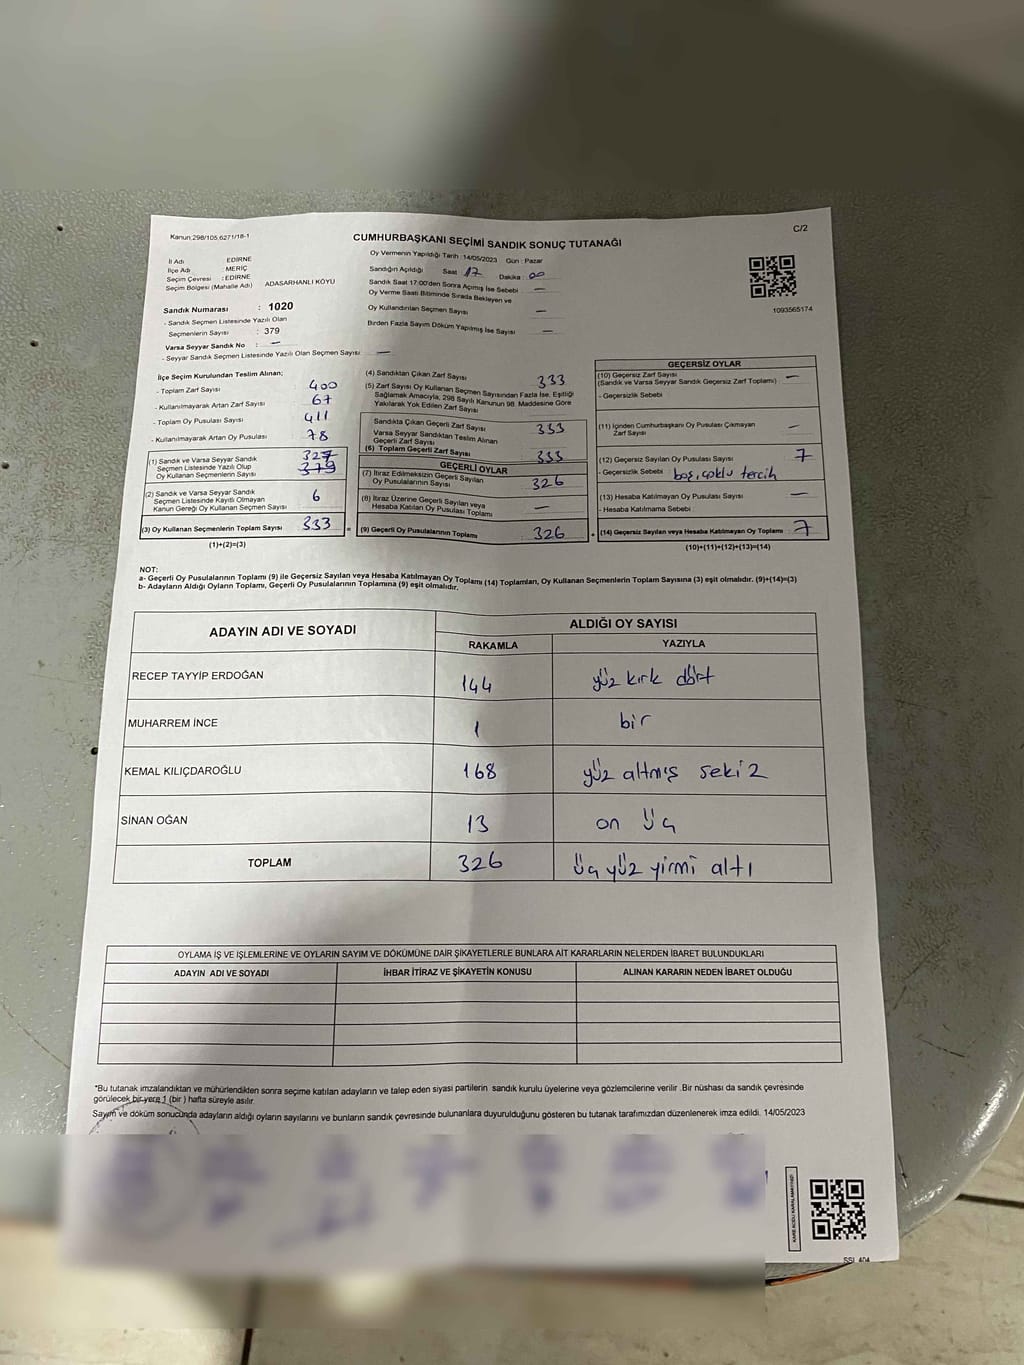 Kanun:298/105,6271/18-1
C/2
CUMHURBAŞKANI SEÇİMİ SANDIK SONUÇ TUTANAĞI
İl Adı EDİRNE
İlçe Adı MERİÇ
Seçim Çevresi : EDİRNE
Seçim Bölgesi (Mahalle Adı) ADASARHANLI KÖYÜ
Sandık Numarası : 1020
- Sandık Seçmen Listesinde Yazılı Olan
Seçmenlerin Sayısı : 379
Varsa Seyyar Sandık No : —
- Seyyar Sandık Seçmen Listesinde Yazılı Olan Seçmen Sayısı —
Oy Vermenin Yapıldığı Tarih : 14/05/2023 Gün : Pazar
Sandığın Açıldığı Saat 17 Dakika : 00
Sandık Saat 17:00'den Sonra Açımış İse Sebebi —
Oy Verme Saati Bitiminde Sırada Bekleyen ve
Oy Kullandırılan Seçmen Sayısı —
Birden Fazla Sayım Döküm Yapılmış İse Sayısı —
1093565174
İlçe Seçim Kurulundan Teslim Alınan;
- Toplam Zarf Sayısı 400
- Kullanılmayarak Artan Zarf Sayısı 67
- Toplam Oy Pusulası Sayısı 411
- Kullanılmayarak Artan Oy Pusulası 78
(1) Sandık ve Varsa Seyyar Sandık 327
Seçmen Listesinde Yazılı Olup 379
Oy Kullanan Seçmenlerin Sayısı
(2) Sandık ve Varsa Seyyar Sandık
Seçmen Listesinde Kayıtlı Olmayan 6
Kanun Gereği Oy Kullanan Seçmen Sayısı
(3) Oy Kullanan Seçmenlerin Toplam Sayısı 333 =
(1)+(2)=(3)
(4) Sandıktan Çıkan Zarf Sayısı 333
(5) Zarf Sayısı Oy Kullanan Seçmen Sayısından Fazla İse, Eşitliği
Sağlamak Amacıyla, 298 Sayılı Kanunun 98. Maddesine Göre
Yakılarak Yok Edilen Zarf Sayısı
Sandıkta Çıkan Geçerli Zarf Sayısı 333
Varsa Seyyar Sandıktan Teslim Alınan
Geçerli Zarf Sayısı
(6) Toplam Geçerli Zarf Sayısı 333
GEÇERLİ OYLAR
(7) İtiraz Edilmeksizin Geçerli Sayılan
Oy Pusulasının Sayısı 326
(8) İtiraz Üzerine Geçerli Sayılan veya
Hesaba Katılan Oy Pusulası Toplamı —
(9) Geçerli Oy Pusulalarının Toplamı 326 +
GEÇERSİZ OYLAR
(10) Geçersiz Zarf Sayısı —
(Sandık ve Varsa Seyyar Sandık Geçersiz Zarf Toplamı)
- Geçersizlik Sebebi
(11) İçinden Cumhurbaşkanı Oy Pusulası Çıkmayan —
Zarf Sayısı
(12) Geçersiz Sayılan Oy Pusulası Sayısı 7
- Geçersizlik Sebebi boş, çoklu tercih
(13) Hesaba Katılmayan Oy Pusulası Sayısı —
- Hesaba Katılmama Sebebi
(14) Geçersiz Sayılan veya Hesaba Katılmayan Oy Toplamı 7
(10)+(11)+(12)+(13)=(14)
NOT:
a- Geçerli Oy Pusulalarının Toplamı (9) ile Geçersiz Sayılan veya Hesaba Katılmayan Oy Toplamı (14) Toplamları, Oy Kullanan Seçmenlerin Toplam Sayısına (3) eşit olmalıdır. (9)+(14)=(3)
b- Adayların Aldığı Oyların Toplamı, Geçerli Oy Pusulalarının Toplamına (9) eşit olmalıdır.
ADAYIN ADI VE SOYADI ALDIĞI OY SAYISI
RAKAMLA YAZIYLA
RECEP TAYYİP ERDOĞAN 144 yüz kırk dört
MUHARREM İNCE 1 bir
KEMAL KILIÇDAROĞLU 168 yüz altmış sekiz
SİNAN OĞAN 13 on üç
TOPLAM 326 üç yüz yirmi altı
OYLAMA İŞ VE İŞLEMLERİNE VE OYLARIN SAYIM VE DÖKÜMÜNE DAİR ŞİKAYETLERLE BUNLARA AİT KARARLARIN NELERDEN İBARET BULUNDUKLARI
ADAYIN ADI VE SOYADI İHBAR İTİRAZ VE ŞİKAYETİN KONUSU ALINAN KARARIN NEDEN İBARET OLDUĞU
*Bu tutanak imzalandıktan ve mühürlendikten sonra seçime katılan adayların ve talep eden siyasi partilerin sandık kurulu üyelerine veya gözlemcilerine verilir .Bir nüshası da sandık çevresinde
görülecek bir yere 1 (bir ) hafta süreyle asılır.
Sayım ve döküm sonucunda adayların aldığı oyların sayılarını ve bunların sandık çevresinde bulunanlara duyurulduğunu gösteren bu tutanak tarafımızdan düzenlenerek imza edildi. 14/05/2023
KARE KODU KARALAMAYINIZ!
SSI 404